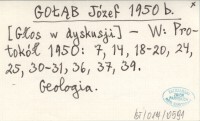 GOŁĄB Józef 1950 b.
[Głos w dyskusji] – W: Pro-
tokół 1950: 7, 14, 18-20, 24,
25, 30-31, 36, 37, 39.
Geologia.